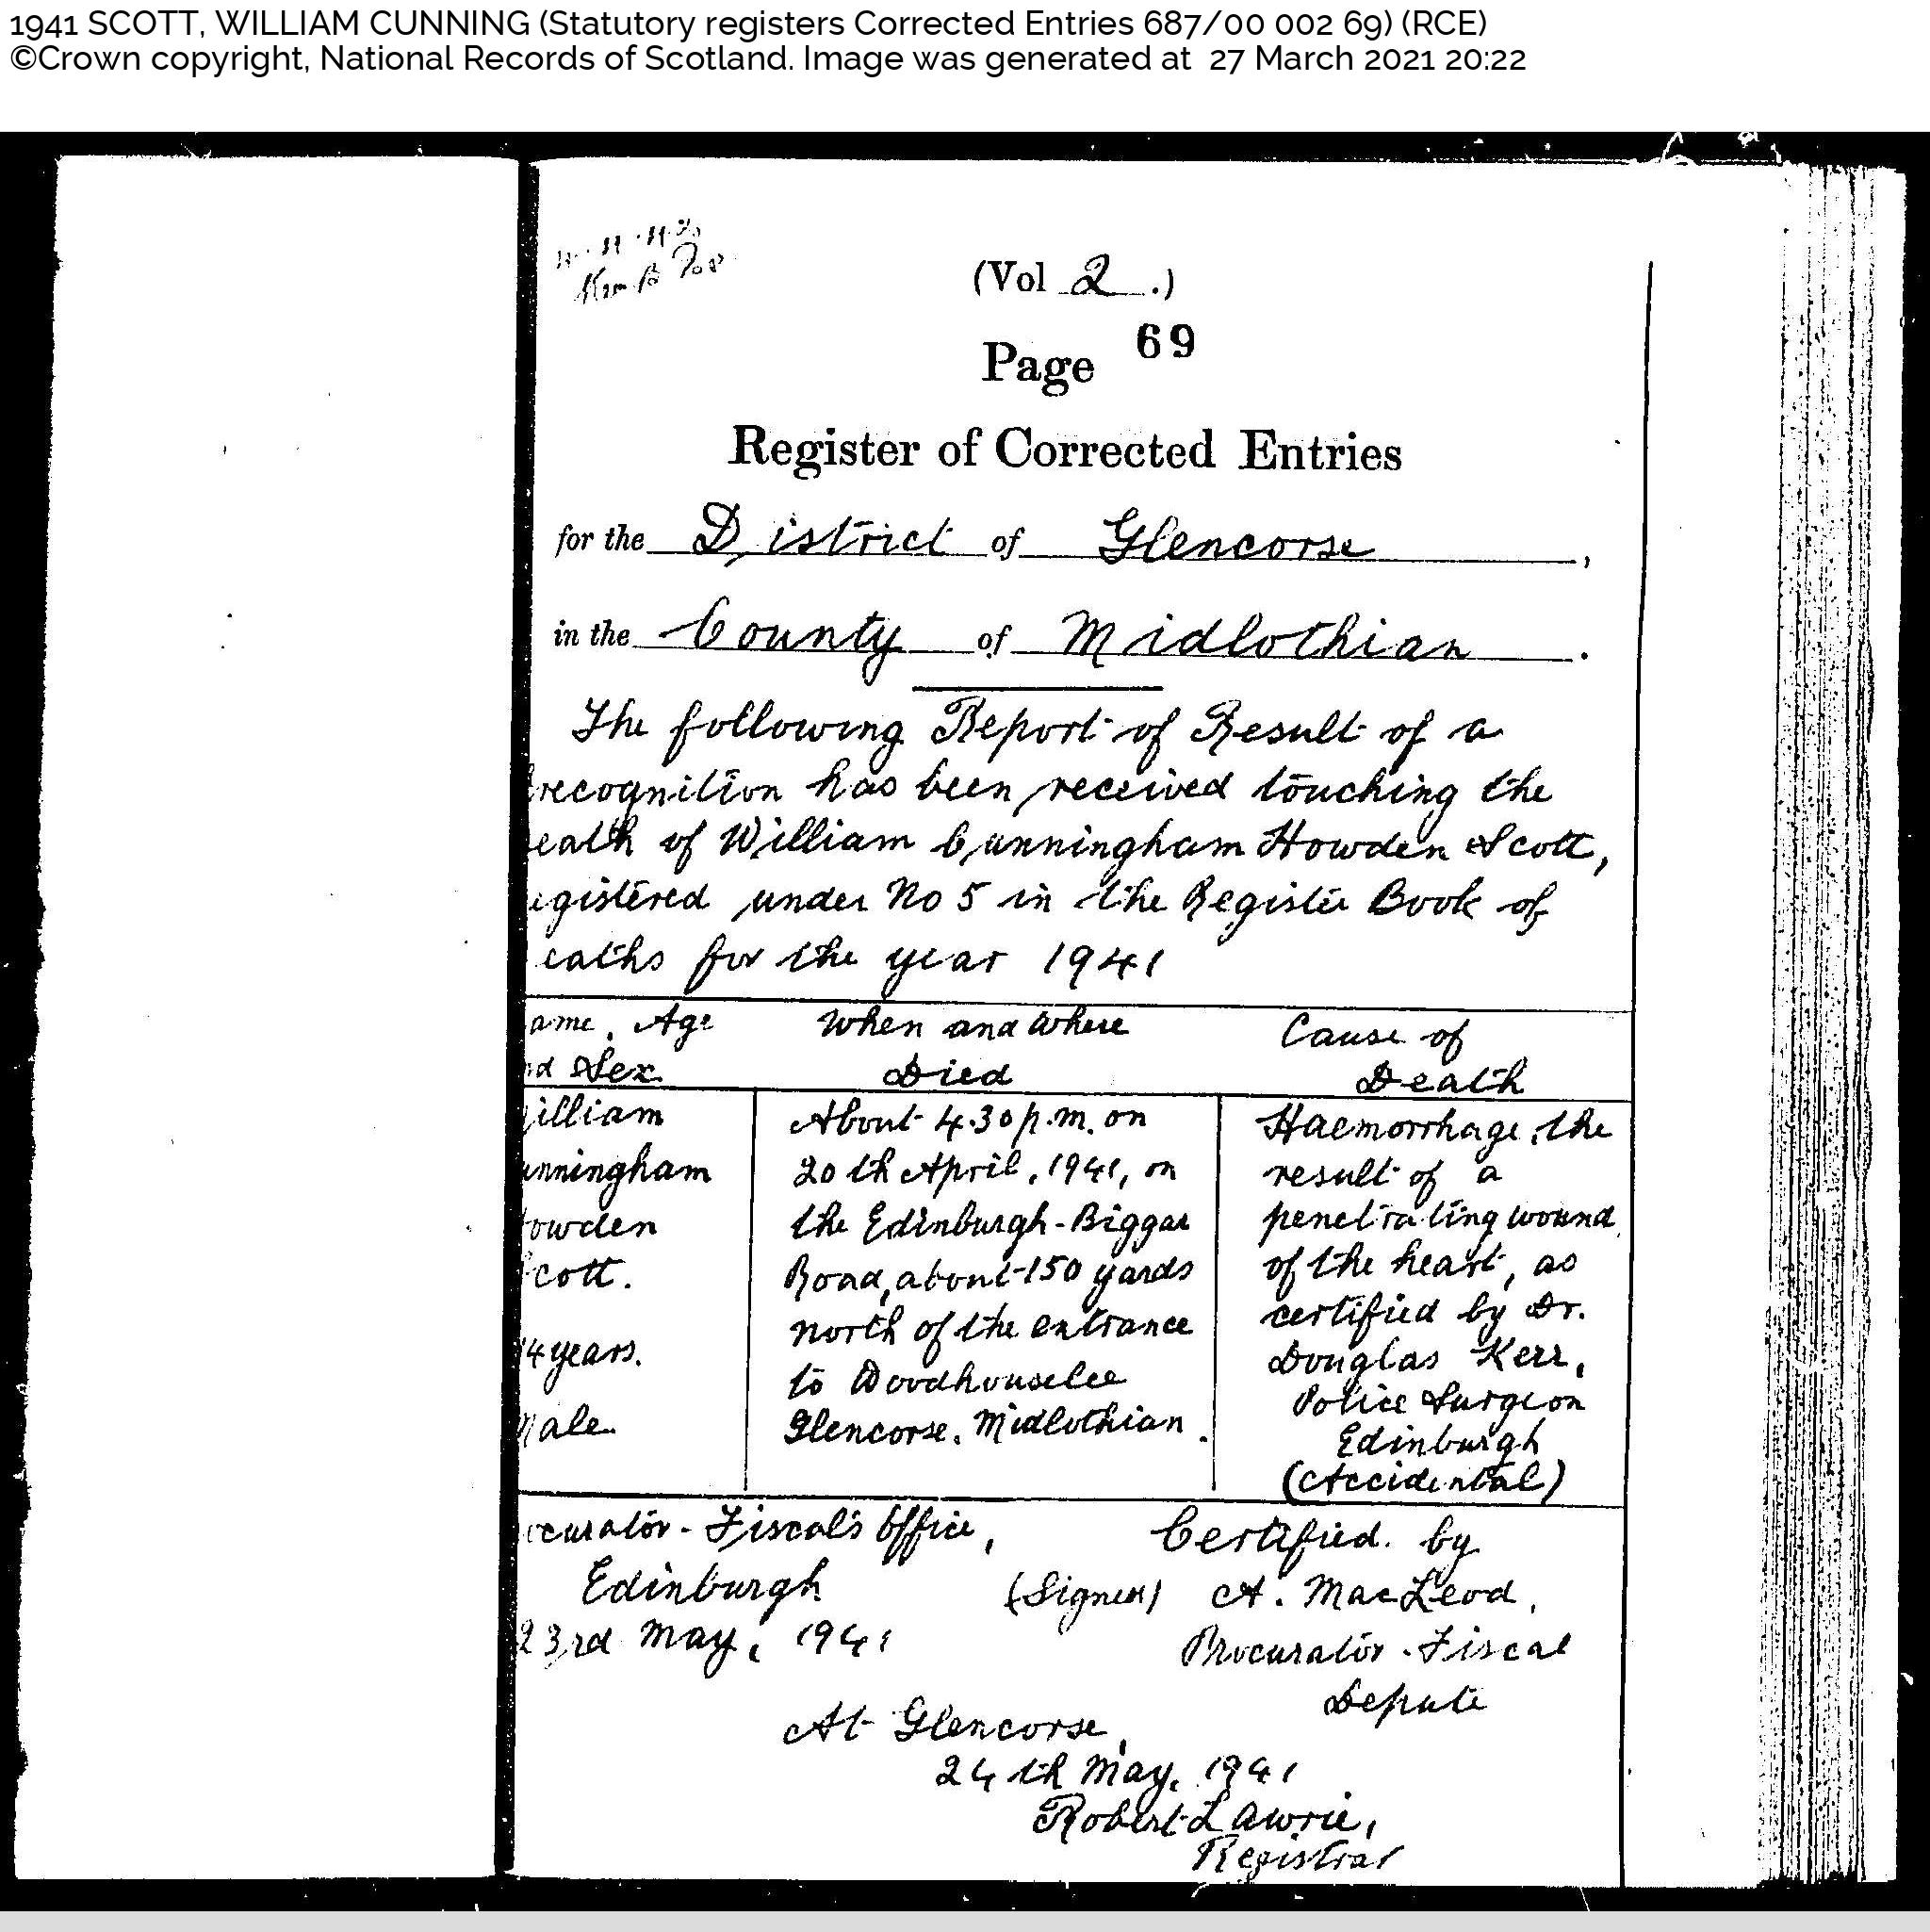 1941 SCOTT, WILLIAM CUNNING (Statutory registers Corrected Entries 687/00 002 69) (RCE)
©Crown copyright, National Records of Scotland. Image was generated at 27 March 2021 20:22
(Vol 2.)
Page 69
Register of Corrected Entries
for the District of Glencorse,
in the County of Midlothian.
The following Report of Result of a
recognition has been received touching the
eath of William Cunningham Howden Scott,
egistered under No 5 in the Register Book of
eaths for the year 1941
ame, Age When and Where Cause of
nd Sex. Died Death
illiam About 4.30 p.m. on Haemorrhage, the
unningham 20th April, 1941, on result of a
owden the Edinburgh-Biggar penetrating wound
cott. Road, about 150 yards of the heart, as
north of the entrance certified by Dr.
4 years. to Woodhouselee Douglas Kerr,
Male. Glencorse, Midlothian. Police Surgeon
Edinburgh
(Accidental)
ocurator-Fiscal's Office, Certified by
Edinburgh (Signed) A. MacLeod,
23rd May, 1941 Procurator-Fiscal
Depute
At Glencorse,
24th May, 1941
Robert Lawrie,
Registrar